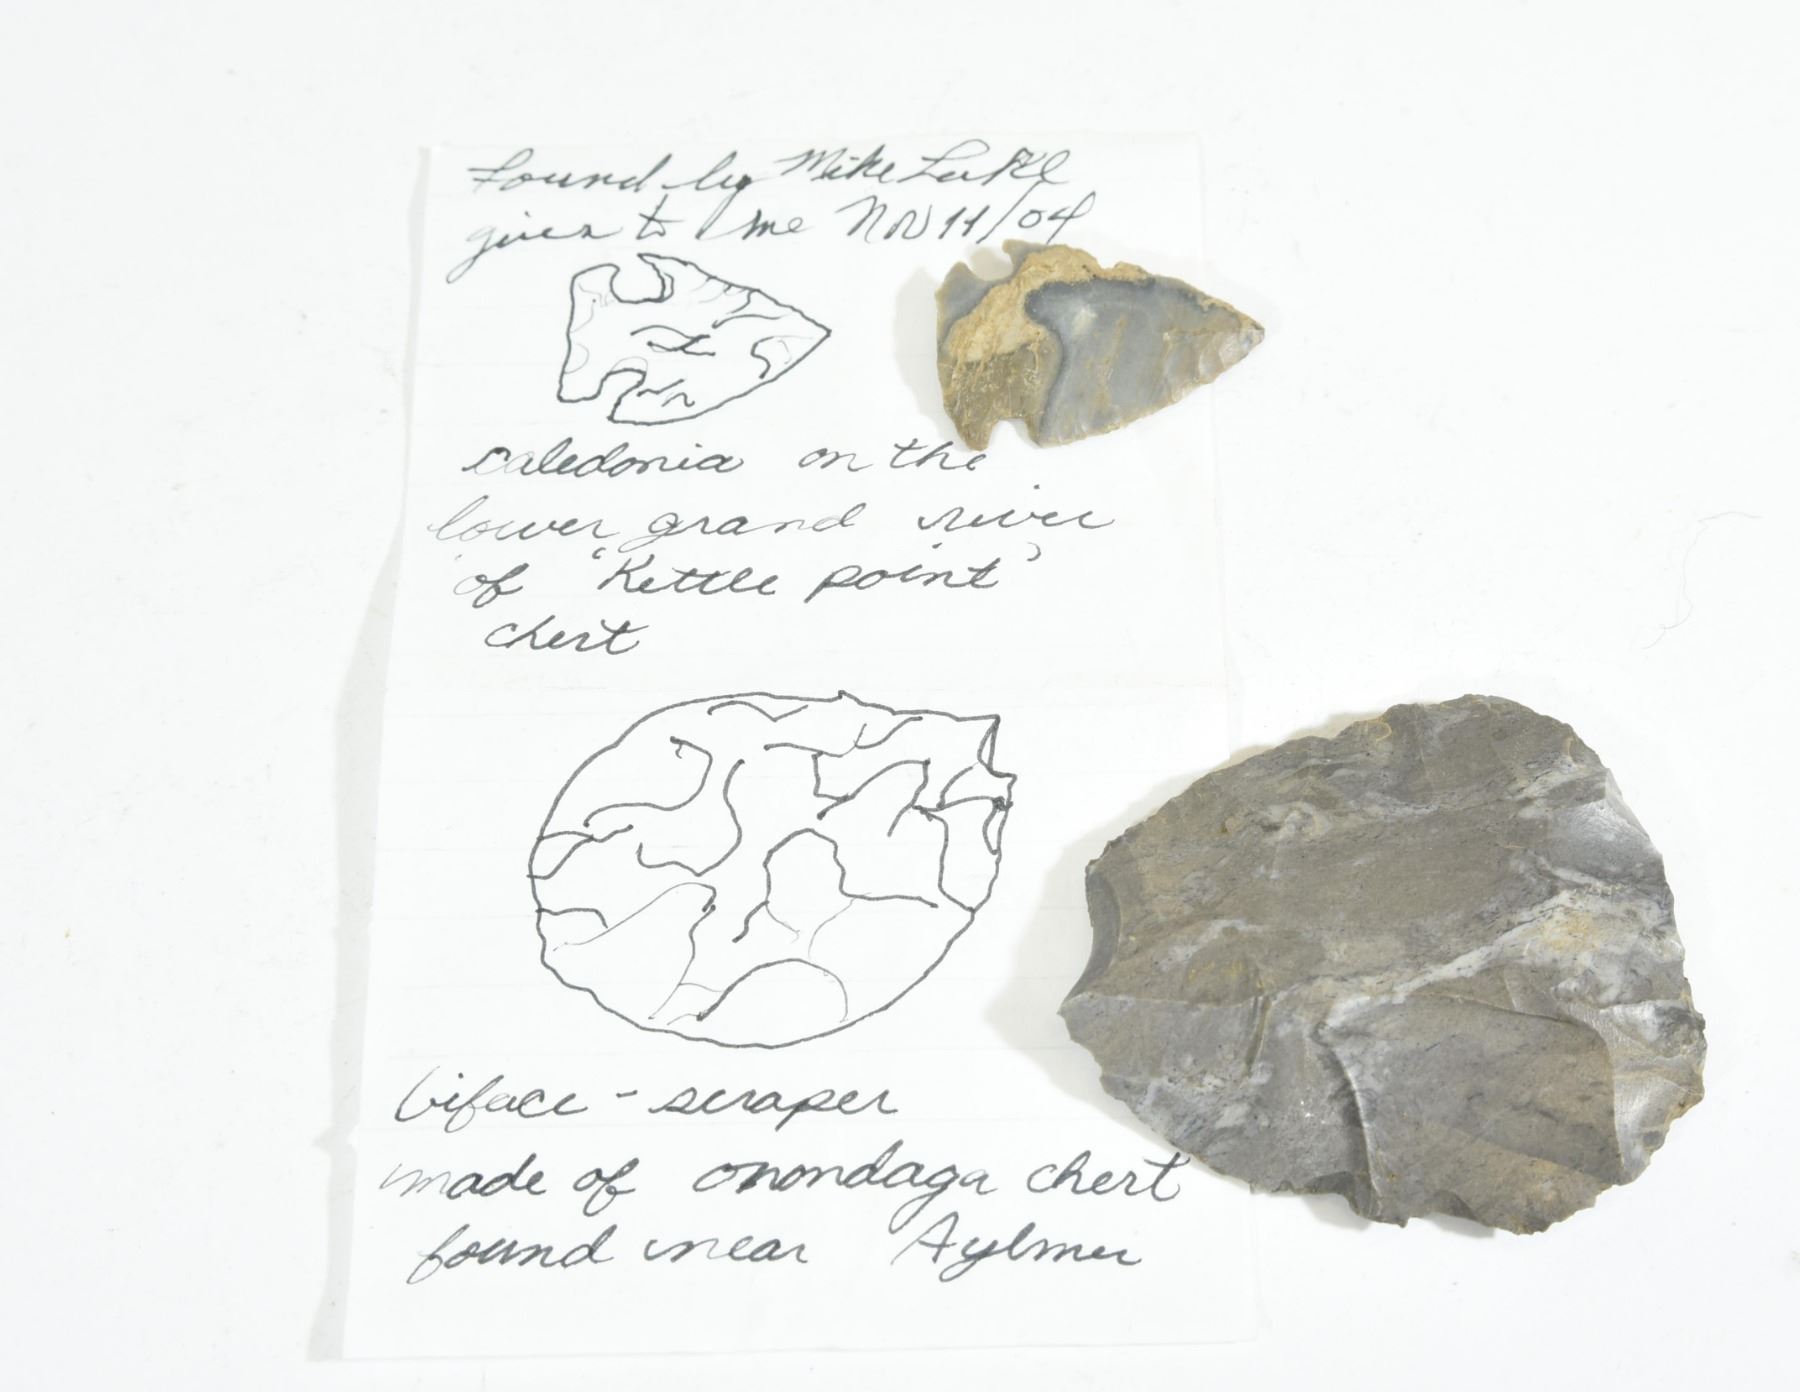 found by Mike
given to me Nov 11/04
caledonia on the
lower grand river
of 'Kettle point'
chert
biface - scraper
made of onondaga chert
found near Aylmer